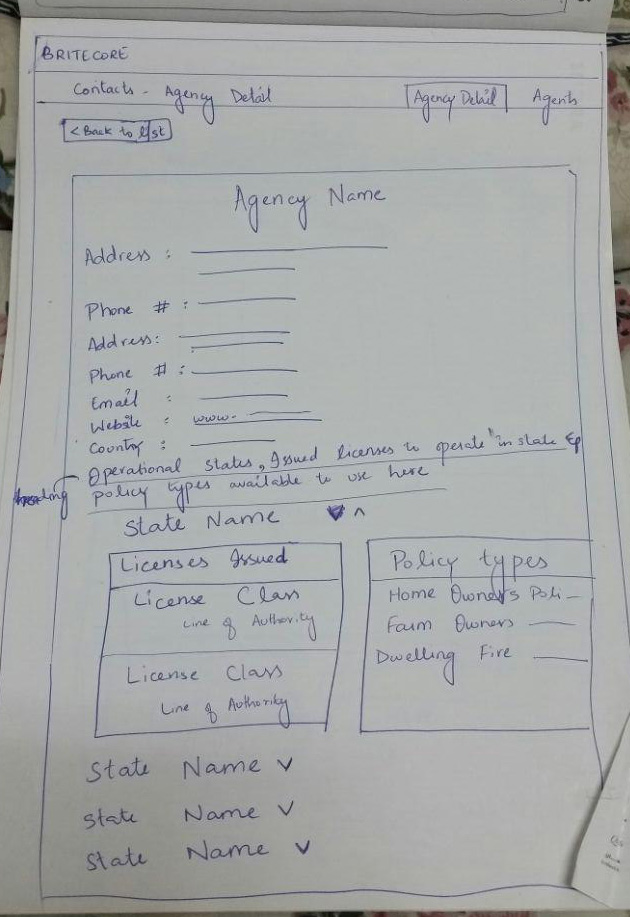 BRITECORE
Contacts - Agency Detail Agency Detail Agents
< Back to list
Agency Name
Address :
Phone # :
Address:
Phone # :
Email :
Website : www.
Country :
Operational states, Issued licenses to operate in state &
heading policy types available to use here
State Name ^
Licenses Issued
License Class
Line of Authority
License Class
Line of Authority
Policy types
Home Owners Poli-
Farm Owners
Dwelling Fire
State Name v
State Name v
State Name v